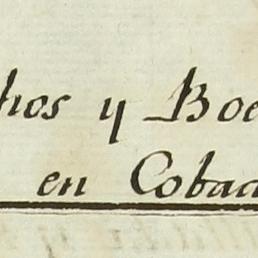 hos y Boe
en Cobac